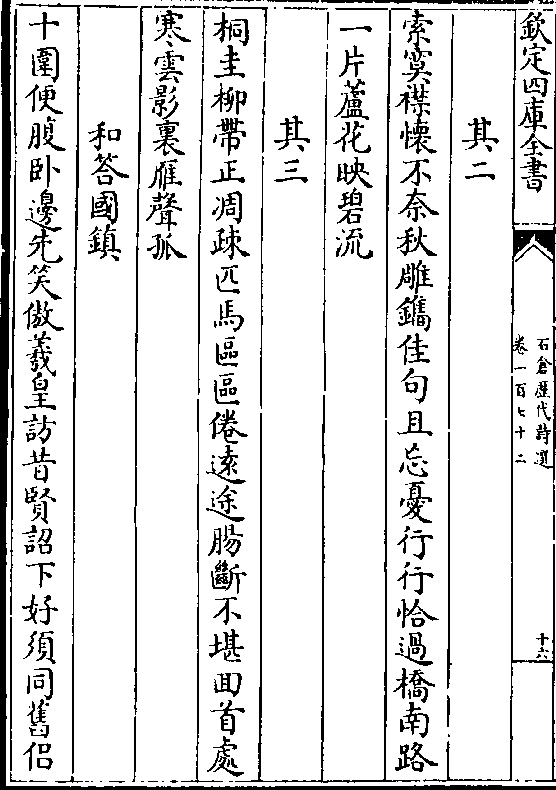 欽定四庫全書
石倉歷代詩選
卷一百七十二
十六
其二
索寞襟懷不奈秋雕鐫佳句且忘憂行行恰過橋南路
一片蘆花映碧流
其三
桐圭柳帶正凋疎匹馬區區倦遠途腸斷不堪回首處
寒雲影裏雁聲孤
和答國鎮
十圍便腹卧邊先笑傲羲皇訪昔賢詔下好須同舊侣